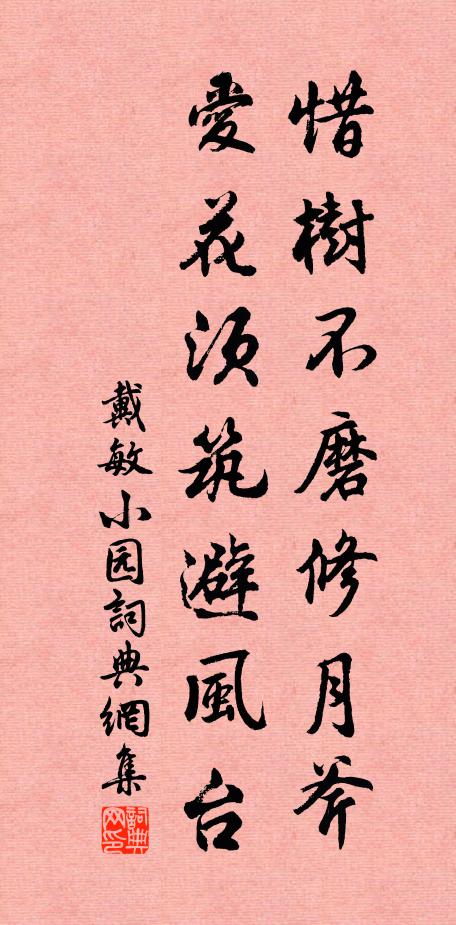 惜樹不磨修月斧
愛花須筑避風台
戴敏小园詞典網集
詞典网印